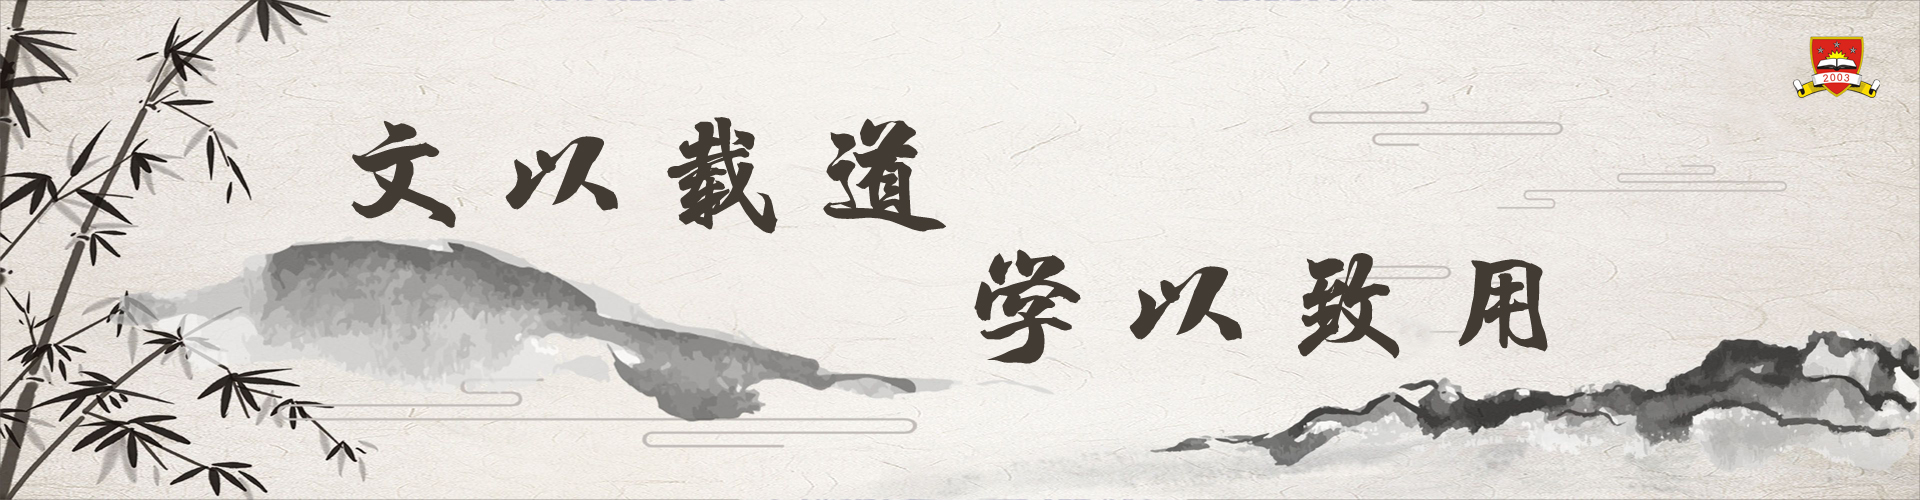 文以载道
学以致用
2003